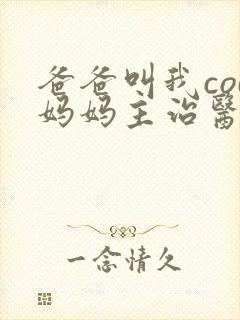 爸爸叫我co
妈妈主治醫
一念情久